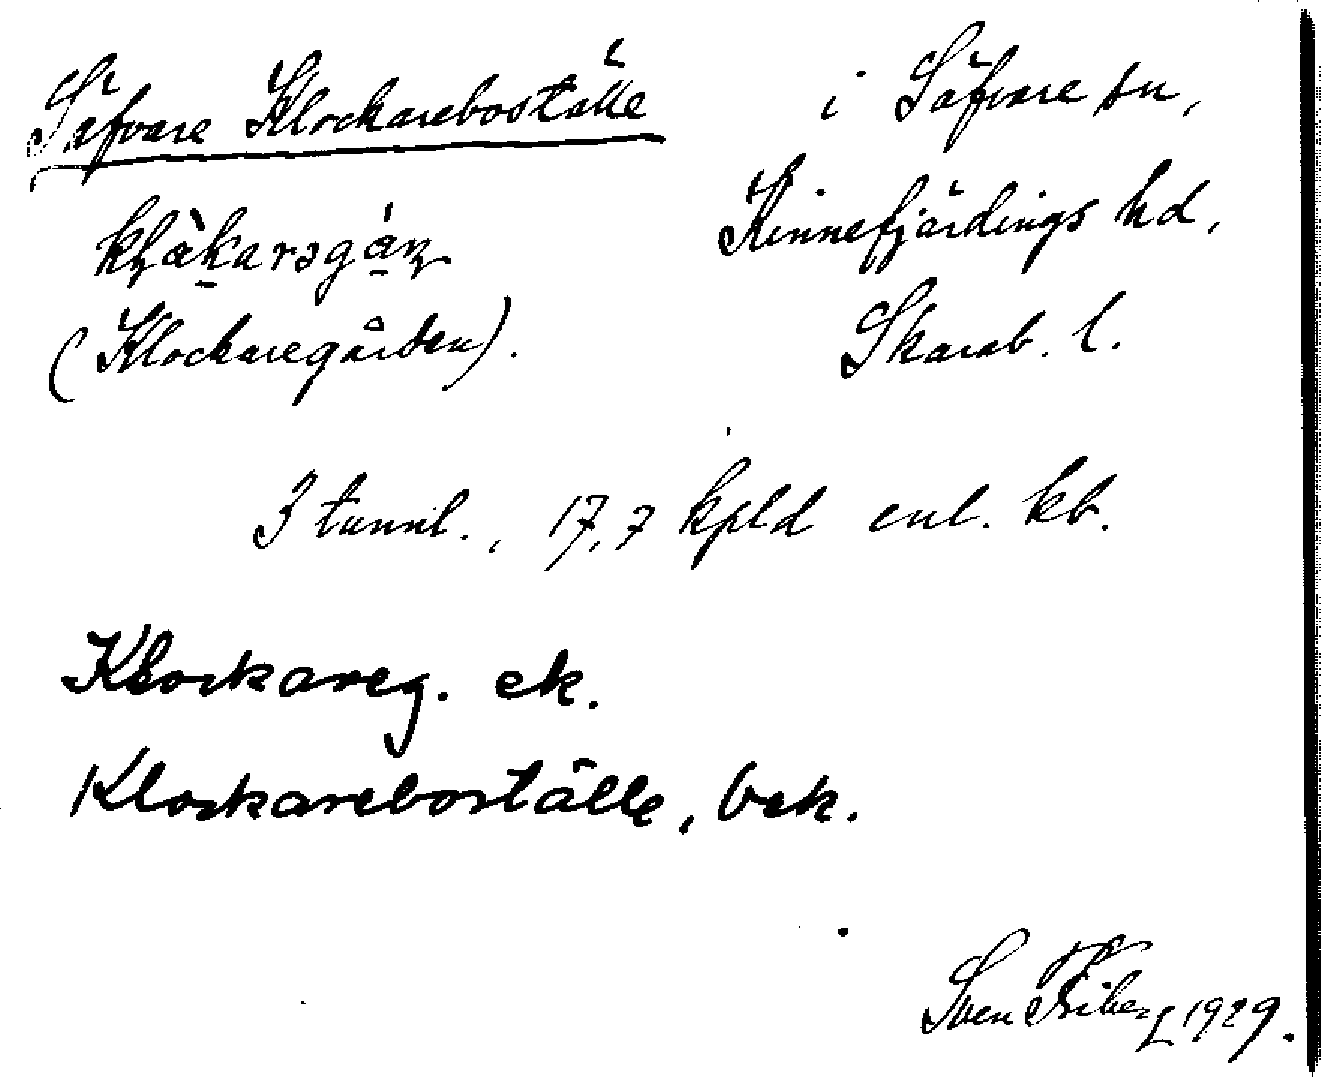 Säfvare Klockareboställe
i Säfvare sn,
Kinnefjärdings hd,
Skarab. l.
(Klockaregården).
3 tunnl., 17,7 kpld enl. kb.
Klockareg. ek.
Klockareboställe, bek.
Sven Friberg 1929.